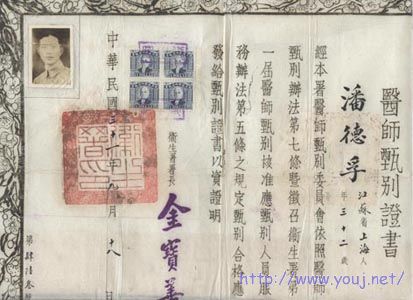 醫師甄別證書
潘德孚
江蘇省上海人
年三十二歲
經本署醫師甄別委員會依照醫師
甄別辦法第七條暨徵召衛生署第
一屆醫師甄別核准應甄別人員服
務辦法第五條之規定甄別合格應
發給甄別證書以資證明
衛生署署長
金寶善
中華民國三十一年九月十八日
http://www.youj.net/